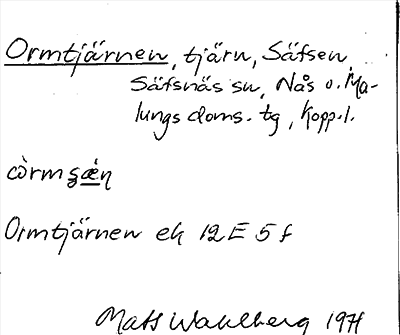 Ormtjärnen, tjärn, Säfsen,
Säfsnäs sn, Nås o. Ma-
lungs doms. tg, Kopp. l.
Ormtjärnen ek 12E 5f
Mats Wahlberg